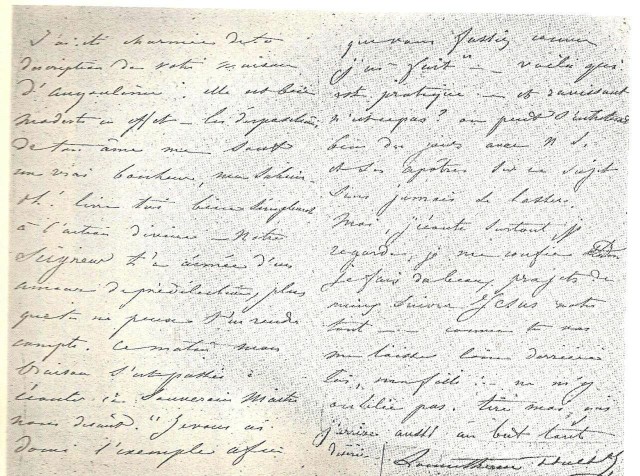 J'ai été charmée de ta
description de votre maison
d'angoulême : elle est bien
modeste en effet — les dispositions
de ton âme me sont
un vrai bonheur, ma
oh! livre toi bien simplement
à l'action divine — Notre
Seigneur t'a aimée d'un
amour de prédilection, plus
que tu ne peux t'en rendre
compte. Ce matin mon
oraison s'est passée à
écouter ce Souverain Maître
nous disant. "Je vous ai
donné l'exemple afin
que vous fassiez comme
j'ai fait" — voilà qui
est pratique — et ravissant
n'est ce pas? on peut s'entretenir
bien des jours avec N S.
et ses apôtres sur ce sujet
sans jamais se lasser.
Moi, j'écoute surtout, je
regarde, je me confie
je fais de beaux projets de
mieux suivre Jésus notre
tout — comme tu vas
me laisser loin derrière
toi, ma fille : ne m'y
oublie pas. tire moi, que
j'arrive aussi au but tout
divin